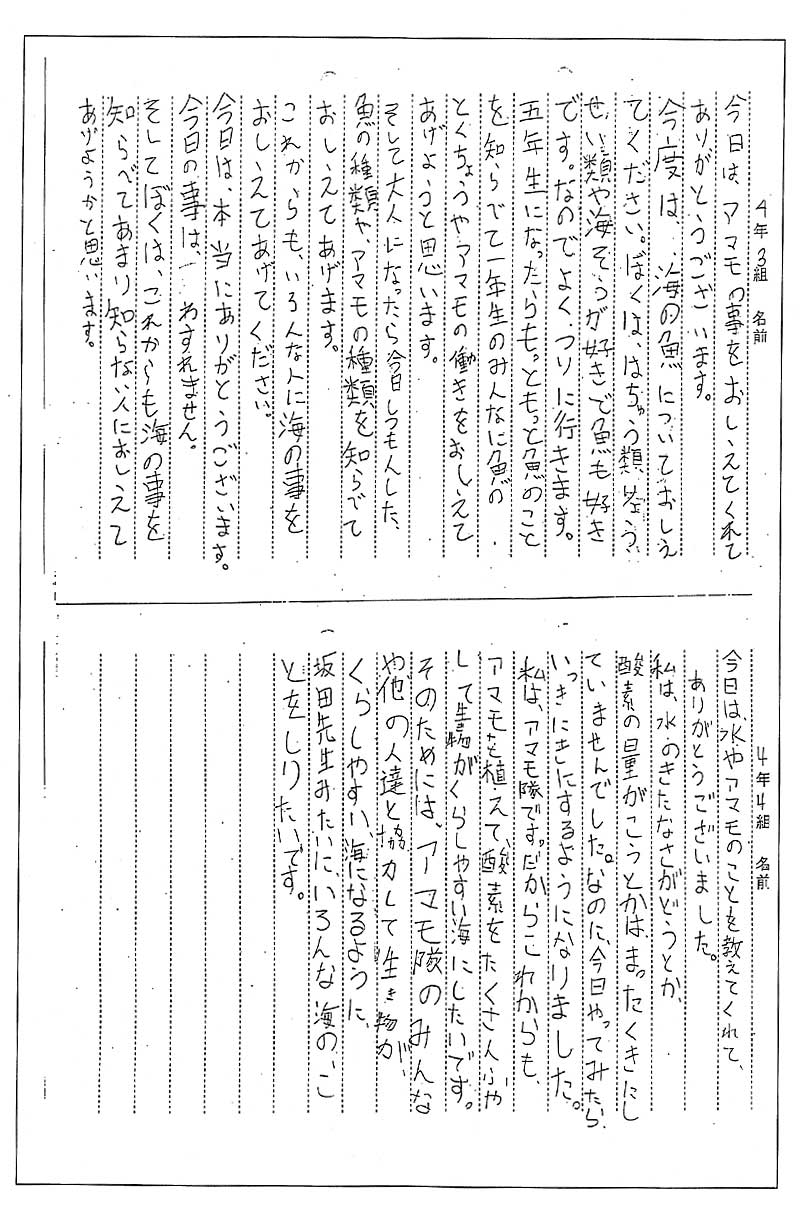 4年3組 名前
今日は、アマモの事をおしえてくれて
ありがとうございます。
今度は、海の魚についておしえ
てください。ぼくは、はちゅう類、りょう、
せい類や海そうが好きで魚も好き
です。なのでよく、つりに行きます。
五年生になったらもっともっと魚のこと
を知らべて一年生のみんなに魚の
とくちょうやアマモの働きをおしえて
あげようと思います。
そして大人になったら今日しつもんした、
魚の種類や、アマモの種類を知らべて
おしえてあげます。
これからも、いろんな人に海の事を
おしえてあげてください。
今日は、本当にありがとうございます。
今日の事は、一わすれません。
そしてぼくは、これからも海の事を
知らべてあまり知らない人におしえて
あげようかと思います。
4年4組 名前
今日は、水やアマモのことを教えてくれて、
ありがとうございました。
私は、水のきたなさがどうとか、
酸素の量がこうとかは、まったくきにし
ていませんでした。なのに、今日やってみたら、
いっきにきにするようになりました。
私は、アマモ隊です。だからこれからも、
アマモを植えて、酸素をたくさんふや
して生物がくらしやすい海にしたいです。
そのためには、アーマモ隊のみんな
や他の人達と協力して生き物が、
くらしやすい、海になるように、
坂田先生みたいに、いろんな海の、こ
とをしりたいです。